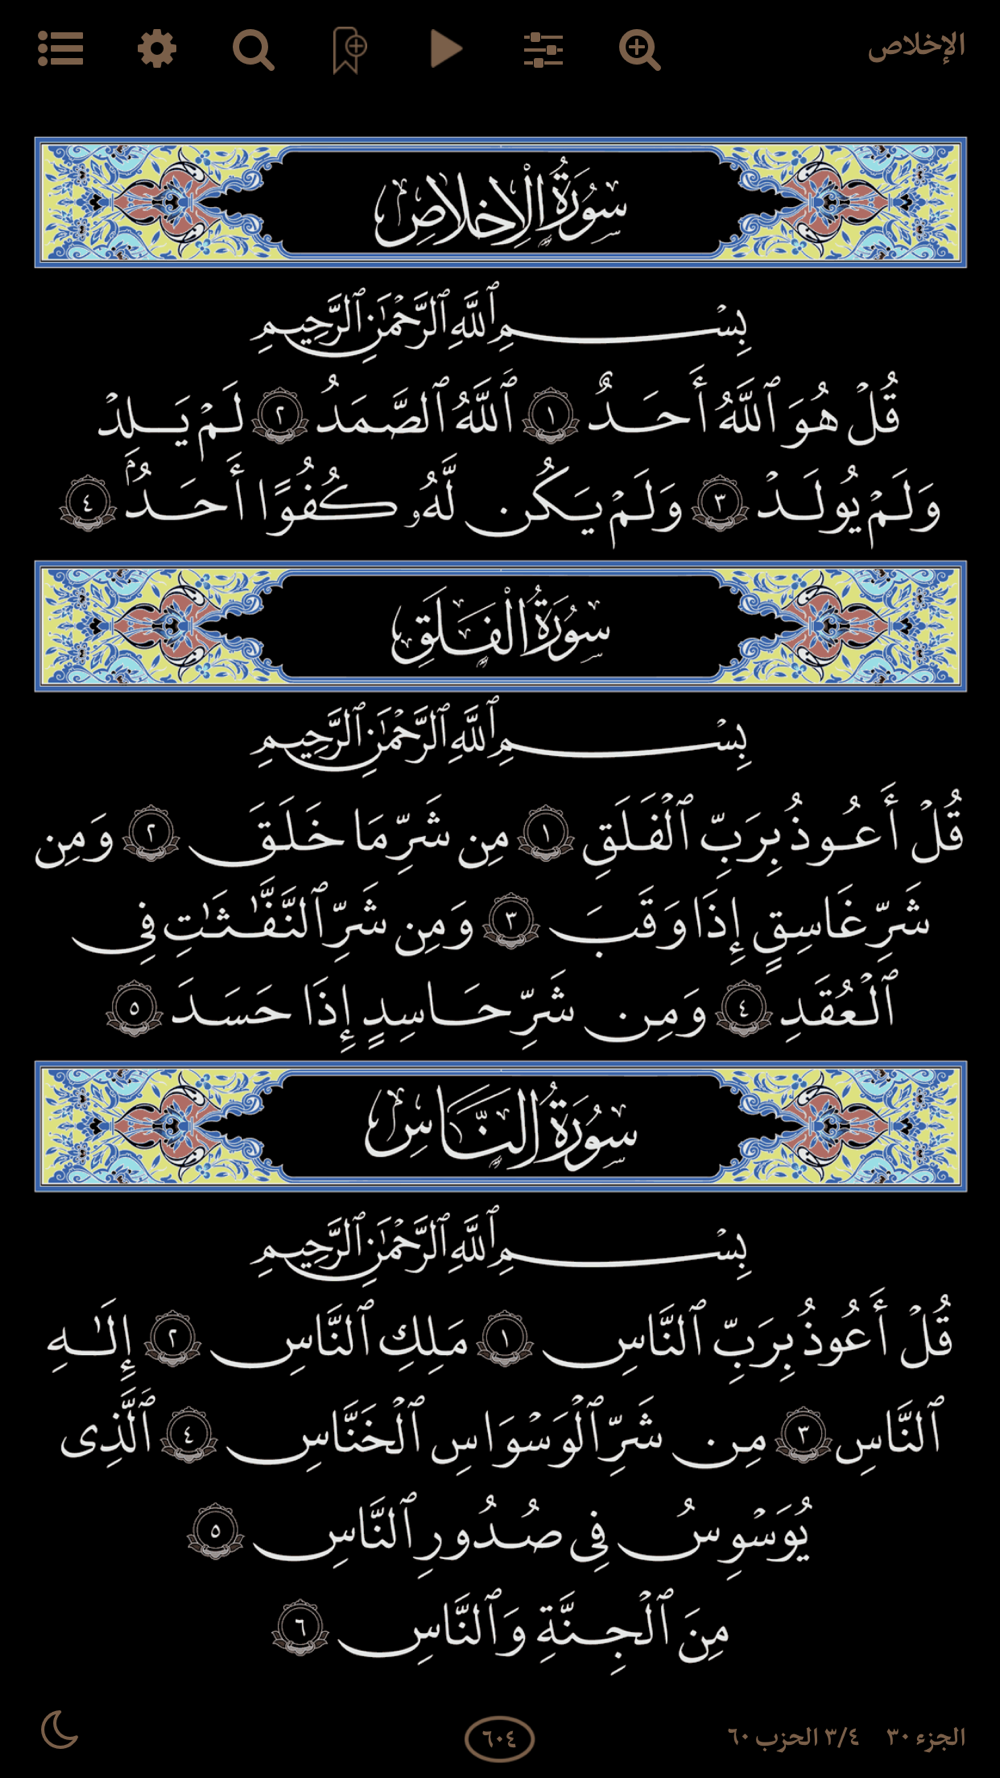 الإخلاص
سُورَةُ الْإِخْلَاصِ
بِسْمِ ٱللَّهِ ٱلرَّحْمَٰنِ ٱلرَّحِيمِ
قُلْ هُوَ ٱللَّهُ أَحَدٌ ١ ٱللَّهُ ٱلصَّمَدُ ٢ لَمْ يَلِدْ
وَلَمْ يُولَدْ ٣ وَلَمْ يَكُن لَّهُۥ كُفُوًا أَحَدٌۢ ٤
سُورَةُ الْفَلَقِ
بِسْمِ ٱللَّهِ ٱلرَّحْمَٰنِ ٱلرَّحِيمِ
قُلْ أَعُوذُ بِرَبِّ ٱلْفَلَقِ ١ مِن شَرِّ مَا خَلَقَ ٢ وَمِن
شَرِّ غَاسِقٍ إِذَا وَقَبَ ٣ وَمِن شَرِّ ٱلنَّفَّٰثَٰتِ فِى
ٱلْعُقَدِ ٤ وَمِن شَرِّ حَاسِدٍ إِذَا حَسَدَ ٥
سُورَةُ النَّاسِ
بِسْمِ ٱللَّهِ ٱلرَّحْمَٰنِ ٱلرَّحِيمِ
قُلْ أَعُوذُ بِرَبِّ ٱلنَّاسِ ١ مَلِكِ ٱلنَّاسِ ٢ إِلَٰهِ
ٱلنَّاسِ ٣ مِن شَرِّ ٱلْوَسْوَاسِ ٱلْخَنَّاسِ ٤ ٱلَّذِى
يُوَسْوِسُ فِى صُدُورِ ٱلنَّاسِ ٥
مِنَ ٱلْجِنَّةِ وَٱلنَّاسِ ٦
الجزء ٣٠ ٣/٤ الحزب ٦٠ ٦٠٤